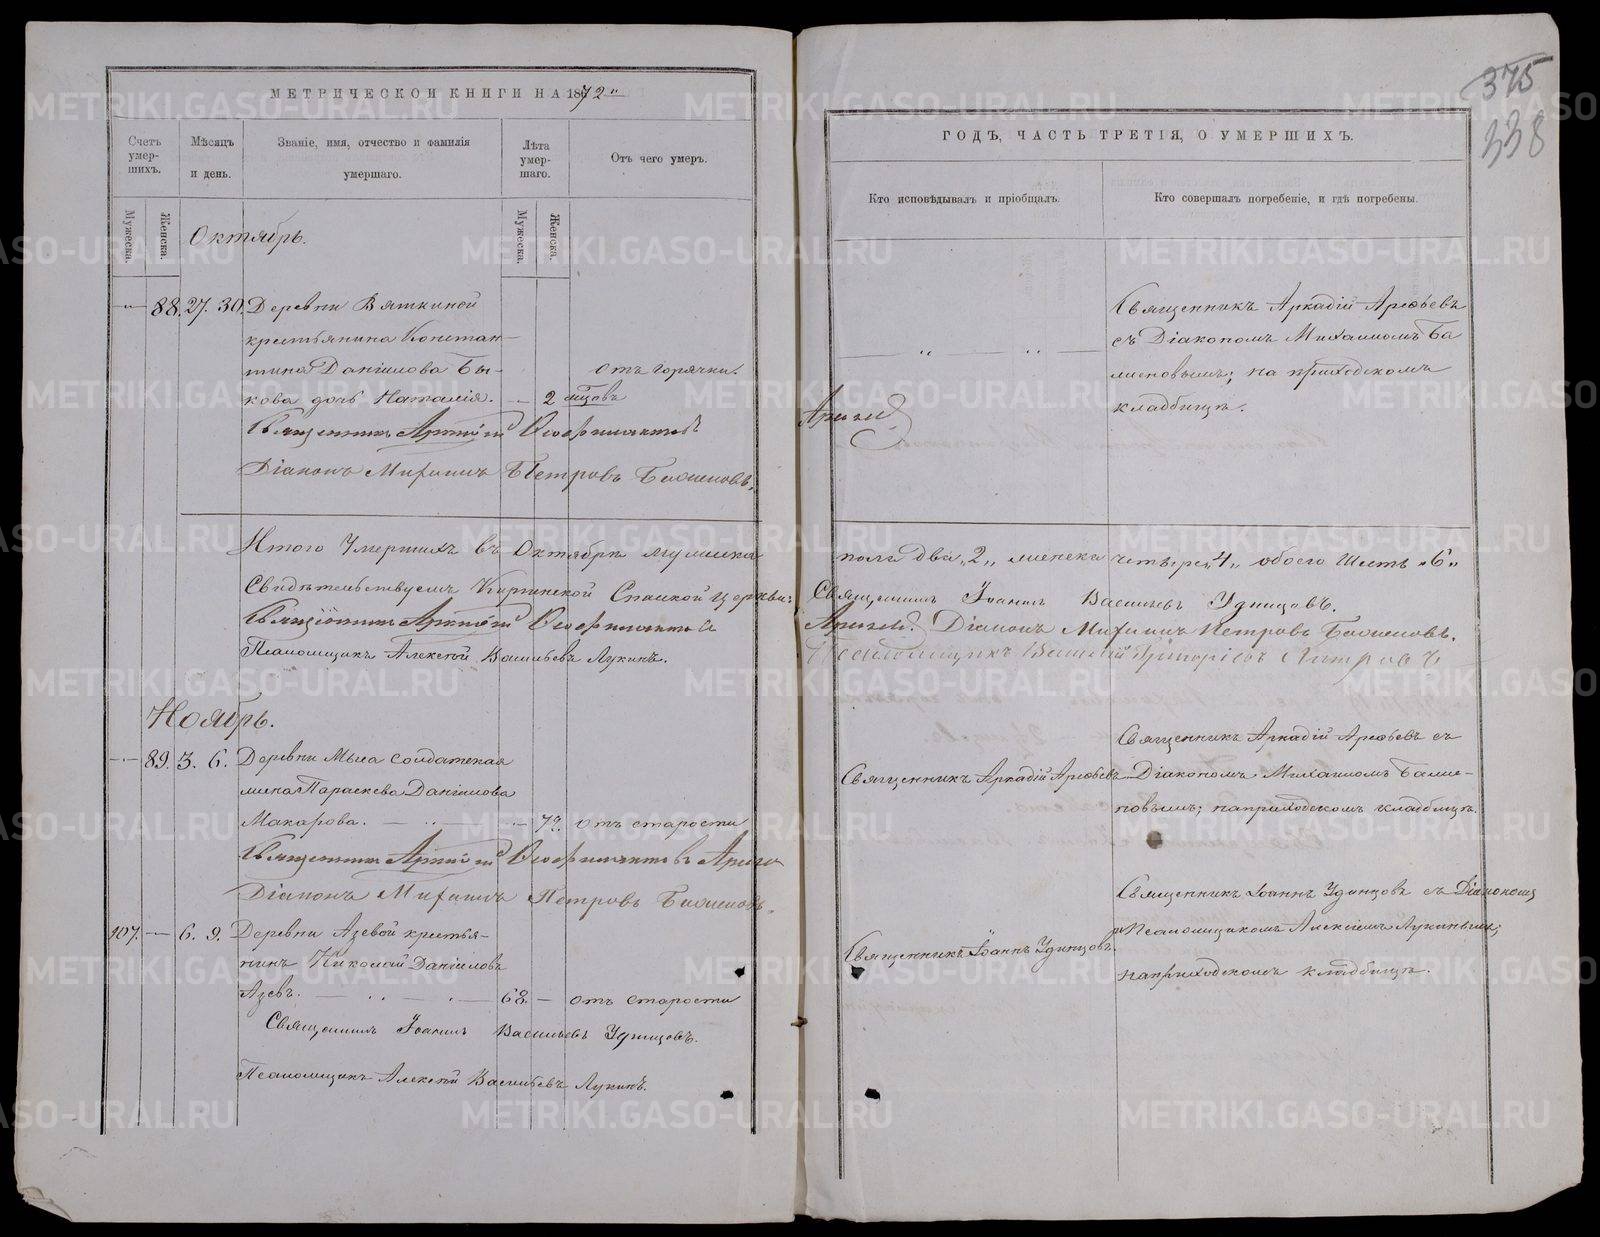 МЕТРИЧЕСКОЙ КНИГИ НА 1872 "
Счетъ умершихъ.
Мѣсяцъ и день.
Званіе, имя, отчество и фамилія умершаго.
Лѣта умершаго.
Отъ чего умеръ.
Мужеска.
Женска.
Мужеска.
Женска.
Октябрь.
88. 27. 30. Деревни Вяткиной
крестьянина Констан-
тина Даніилова Бы-
кова дочь Наталія. 2 мѣсов
отъ горячки.
Священникъ Аркадій Ѳеофилактовъ
Діаконъ Михаилъ Петровъ Баженовъ.
Итого Умершихъ въ Октябрѣ мужеска
Свидѣтельствуемъ Киргинской Спасской церкви:
Священникъ Аркадій Ѳеофилактовъ
Псаломщикъ Алексѣй Васильевъ Лукинъ.
Ноябрь.
89. 3. 6. Деревни Мыса солдатская
жена Параскева Даніилова
Макарова. 72. отъ старости
Священникъ Аркадій Ѳеофилактовъ
Діаконъ Михаилъ Петровъ Баженовъ.
107. 6. 9. Деревни Азевой крестья-
нинъ Николай Даніиловъ
Азевъ. 68. отъ старости
Священникъ Іоаннъ Васильевъ Удинцовъ.
Псаломщикъ Алексѣй Васильевъ Лукинъ.
375
338
ГОДЪ, ЧАСТЬ ТРЕТІЯ, О УМЕРШИХЪ.
Кто исповѣдывалъ и пріобщалъ.
Кто совершалъ погребеніе, и гдѣ погребены.
Священникъ Аркадій Арефьевъ
съ Діакономъ Михаиломъ Ба
женовымъ; на приходскомъ
кладбищѣ.
пола два „2„ женска четыре „4„ обоего Шесть „6„
Священникъ Іоаннъ Васильевъ Удинцовъ.
Діаконъ Михаилъ Петровъ Баженовъ.
Псаломщикъ Василій Григорьевъ
Священникъ Аркадій Арефьевъ
Священникъ Аркадій Арефьевъ съ
Діакономъ Михаиломъ Баже-
новымъ; на приходскомъ кладбищѣ.
Священникъ Іоаннъ Удинцовъ.
Священникъ Іоаннъ Удинцовъ съ Діакономъ
и Псаломщикомъ Алексіемъ Лукинымъ;
на приходскомъ кладбищѣ.
METRIKI.GASO-URAL.RU